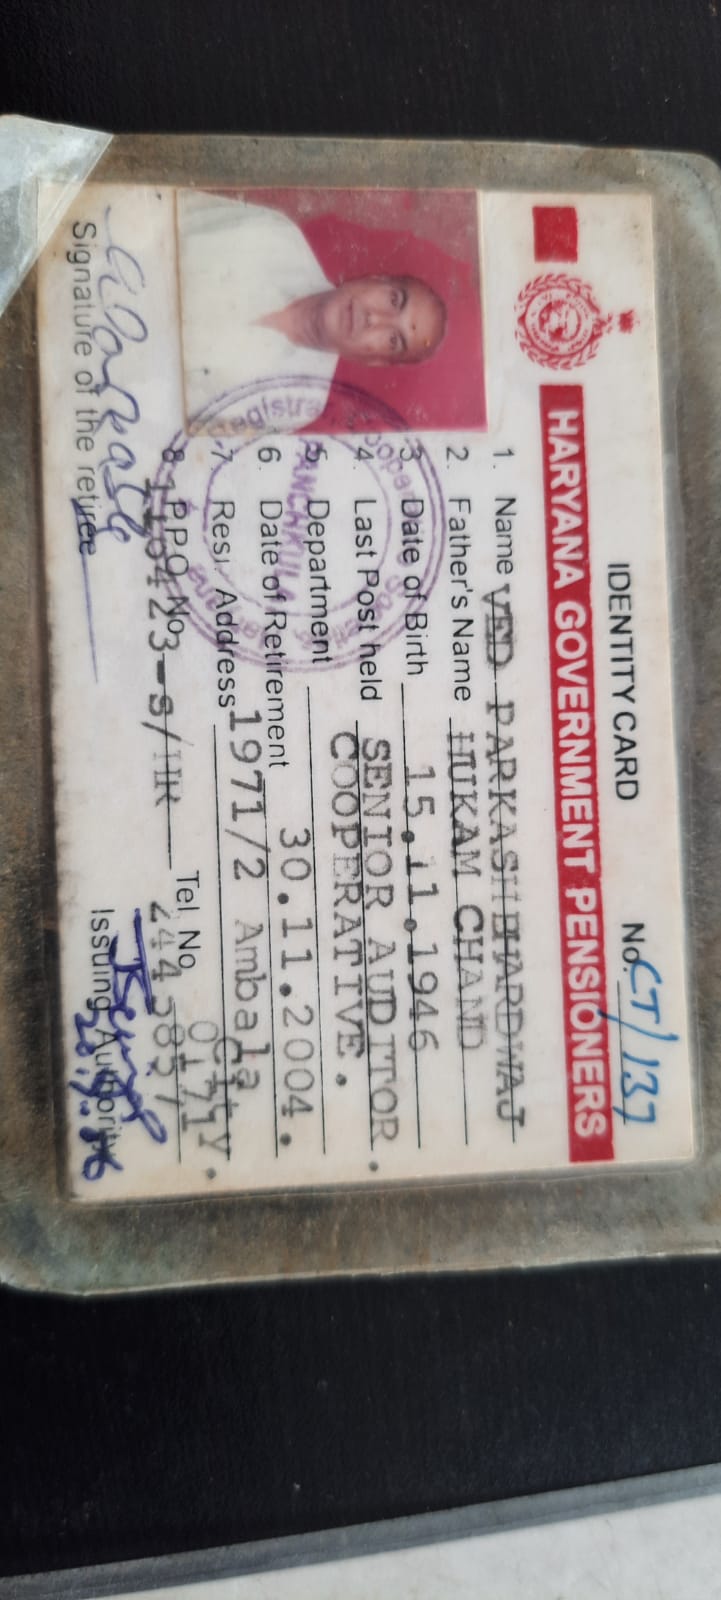 IDENTITY CARD
No. CT/137
HARYANA GOVERNMENT PENSIONERS
1. Name VED PARKASH BHARDWAJ
2. Father's Name HUKAM CHAND
3. Date of Birth 15.11.1946
4. Last Post held SENIOR AUDITOR.
5. Department COOPERATIVE.
6. Date of Retirement 30.11.2004.
7. Resi. Address 1971/2 Ambala City.
8. PPO No. 116423-S/HR Tel. No. 0171
Signature of the retiree
Issuing Authority
PANCHKULA